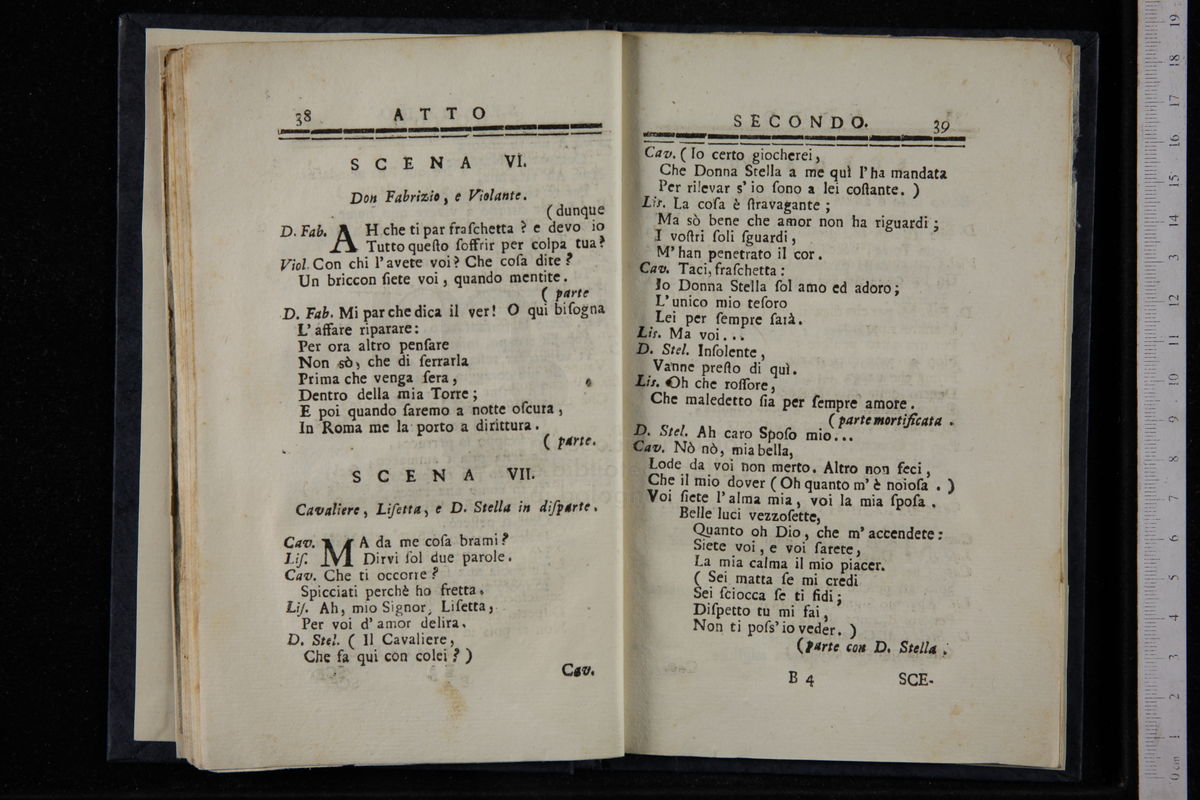 38 ATTO
SCENA VI.
Don Fabrizio, e Violante.
(dunque
D. Fab. AH che ti par fraſchetta ? e devo io
Tutto queſto ſoffrir per colpa tua?
Viol. Con chi l'avete voi? Che coſa dite ?
Un briccon ſiete voi, quando mentite.
( parte
D. Fab. Mi par che dica il ver! O qui biſogna
L'affare riparare:
Per ora altro penſare
Non sò, che di ſerrarla
Prima che venga ſera,
Dentro della mia Torre;
E poi quando ſaremo a notte oſcura,
In Roma me la porto a dirittura.
( parte.
SCENA VII.
Cavaliere, Liſetta, e D. Stella in diſparte.
Cav. MA da me coſa brami?
Liſ. Dirvi ſol due parole.
Cav. Che ti occorre ?
Spicciati perchè ho fretta.
Liſ. Ah, mio Signor, Liſetta,
Per voi d'amor delira.
D. Stel. ( Il Cavaliere,
Che fa qui con colei ? )
Cav.
SECONDO. 39
Cav. ( Io certo giocherei,
Che Donna Stella a me quì l'ha mandata
Per rilevar s'io ſono a lei coſtante. )
Liſ. La coſa è ſtravagante ;
Ma sò bene che amor non ha riguardi ;
I voſtri ſoli ſguardi,
M'han penetrato il cor.
Cav. Taci, fraſchetta :
Io Donna Stella ſol amo ed adoro;
L'unico mio teſoro
Lei per ſempre ſarà.
Lis. Ma voi...
D. Stel. Inſolente,
Vanne preſto di quì.
Lis. Oh che roſſore,
Che maledetto ſia per ſempre amore.
( parte mortificata .
D. Stel. Ah caro Spoſo mio...
Cav. Nò nò, mia bella,
Lode da voi non merto. Altro non feci,
Che il mio dover ( Oh quanto m'è noioſa . )
Voi ſiete l'alma mia, voi la mia ſpoſa .
Belle luci vezzoſette,
Quanto oh Dio, che m'accendete:
Siete voi, e voi ſarete,
La mia calma il mio piacer.
( Sei matta ſe mi credi
Sei ſciocca ſe ti fidi;
Diſpetto tu mi fai,
Non ti poſs'io veder. )
(parte con D. Stella .
B 4 SCE-